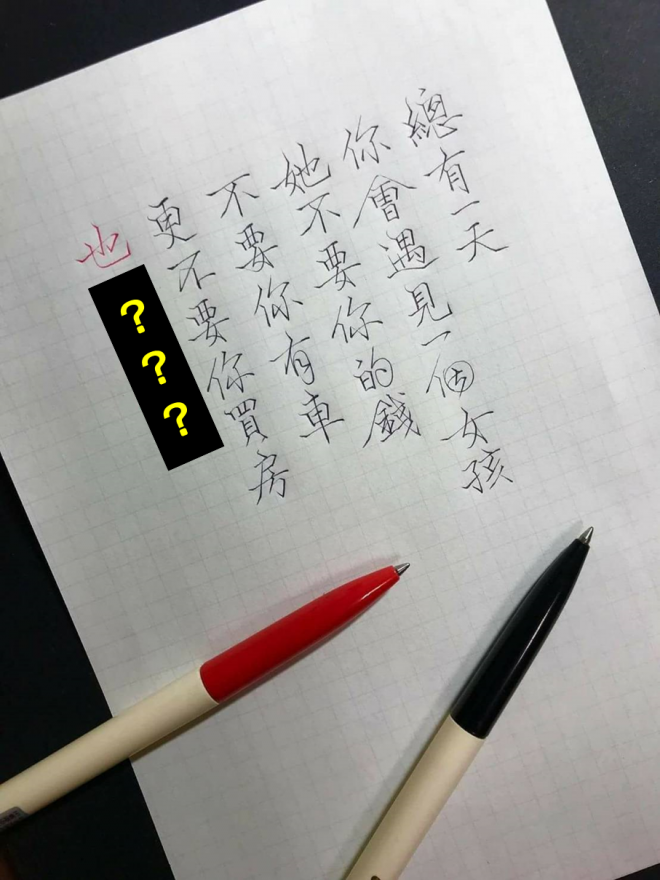 總有一天
你會遇見一個女孩
她不要你的錢
不要你有車
更不要你買房
也
???